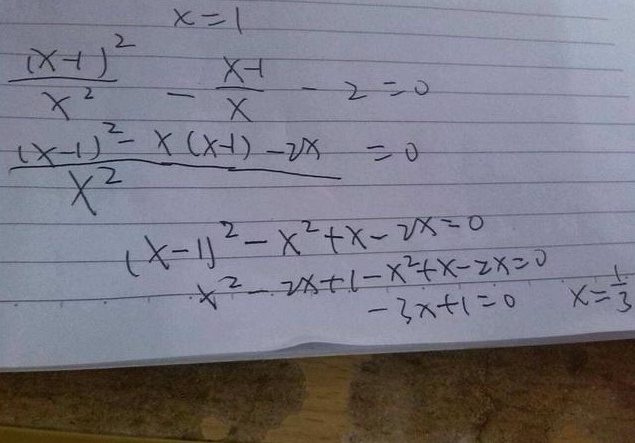 x=1
(x-1)²/x² - x-1/x - 2=0
(x-1)²-x(x-1)-2x/x² =0
(x-1)²-x²+x-2x=0
x²-2x+1-x²+x-2x=0
-3x+1=0 x=1/3